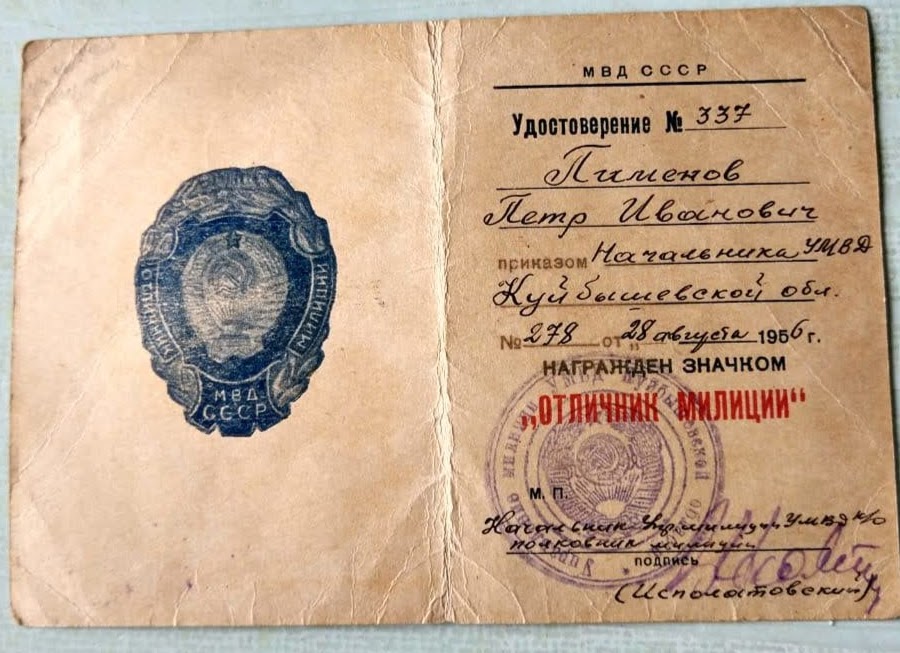 ОТЛИЧНИК
МИЛИЦИИ
МВД
СССР
МВД СССР
Удостоверение № 337
Пименов
Петр Иванович
приказом Начальника УМВД
Куйбышевской обл.
№ 278 от „28 августа 1956 г.
НАГРАЖДЕН ЗНАЧКОМ
„ОТЛИЧНИК МИЛИЦИИ“
М. П.
Начальник Упр. милиции УМВД к/о
полковник милиции
подпись
(Исполатовский)